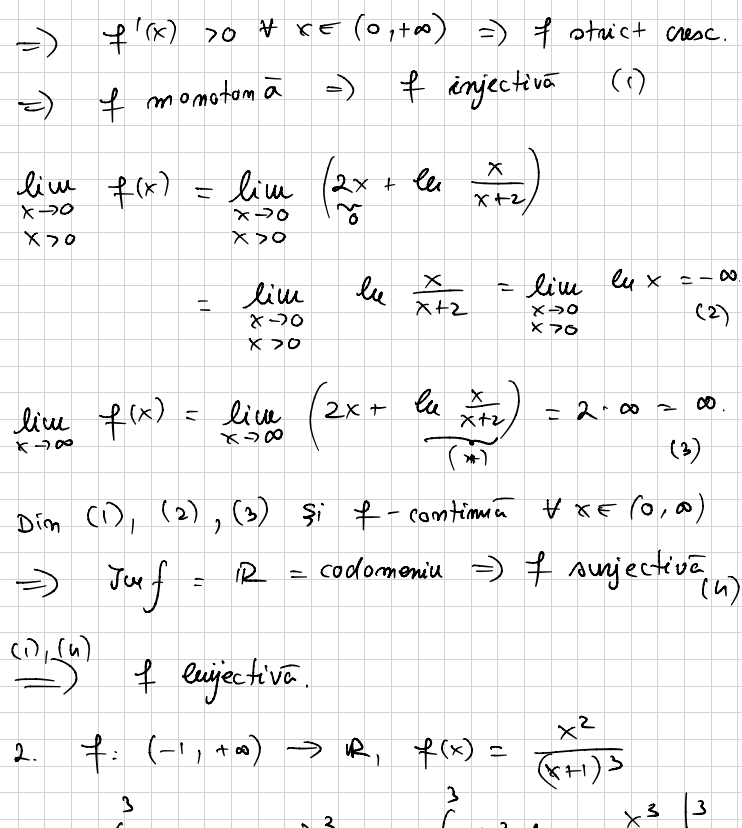 => f'(x) > 0 ∀ x ∈ (0, +∞) => f strict cresc.
=> f monotonă => f injectivă (1)
lim_{x→0, x>0} f(x) = lim_{x→0, x>0} (2x + ln x/(x+2))
0
= lim_{x→0, x>0} ln x/(x+2) = lim_{x→0, x>0} ln x = -∞. (2)
lim_{x→∞} f(x) = lim_{x→∞} (2x + ln x/(x+2)) = 2·∞ = ∞. (3)
(*)
Din (1), (2), (3) și f - continuă ∀ x ∈ (0, ∞)
=> Im f = ℝ = codomeniu => f surjectivă (4)
(1), (4) => f bijectivă.
2. f: (-1, +∞) → ℝ, f(x) = x²/(x+1)³